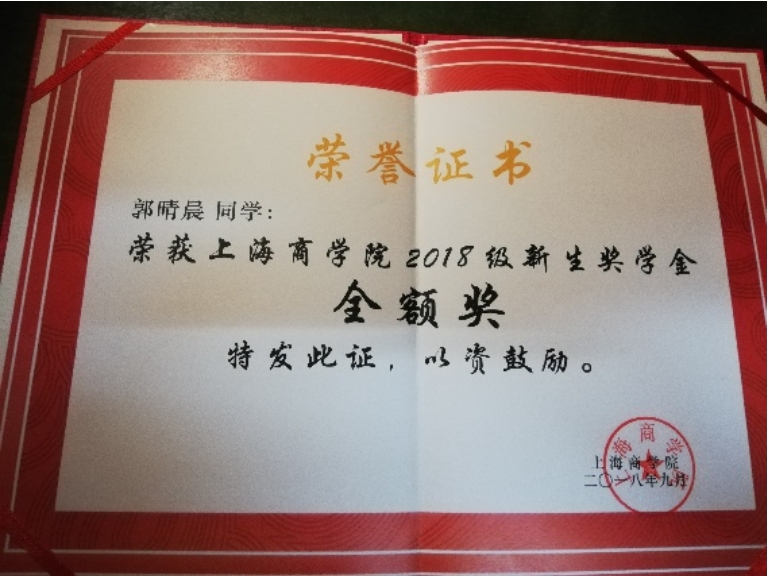 荣誉证书
郭晴晨 同学:
荣获上海商学院2018级新生奖学金
全额奖
特发此证，以资鼓励。
上海商学院
上海商学院
二〇一八年九月